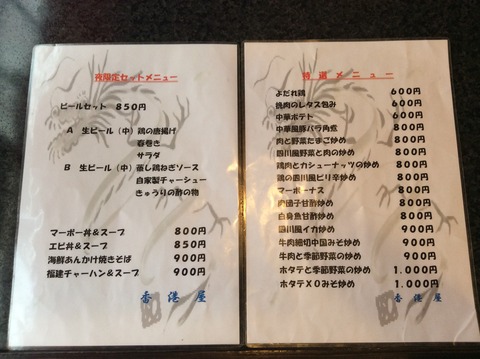 夜限定セットメニュー
ビールセット 850円
A 生ビール（中） 鶏の唐揚げ
春巻き
サラダ
B 生ビール（中） 蒸し鶏ねぎソース
自家製チャーシュー
きゅうりの酢の物
マーボー丼＆スープ 800円
エビ丼＆スープ 850円
海鮮あんかけ焼きそば 900円
福建チャーハン＆スープ 900円
香港屋
特選メニュー
よだれ鶏 600円
挽肉のレタス包み 600円
中華ポテト 600円
中華風豚バラ角煮 800円
肉と野菜たまご炒め 800円
四川風野菜と肉の炒め 800円
鶏肉とカシューナッツの炒め 800円
鶏の四川風ピリ辛炒め 800円
マーボーナス 800円
肉団子甘酢炒め 800円
白身魚甘酢炒め 800円
四川風イカ炒め 900円
牛肉細切中国みそ炒め 900円
牛肉と季節野菜の炒め 900円
ホタテと季節野菜の炒め 1,000円
ホタテXOみそ炒め 1,000円
香港屋